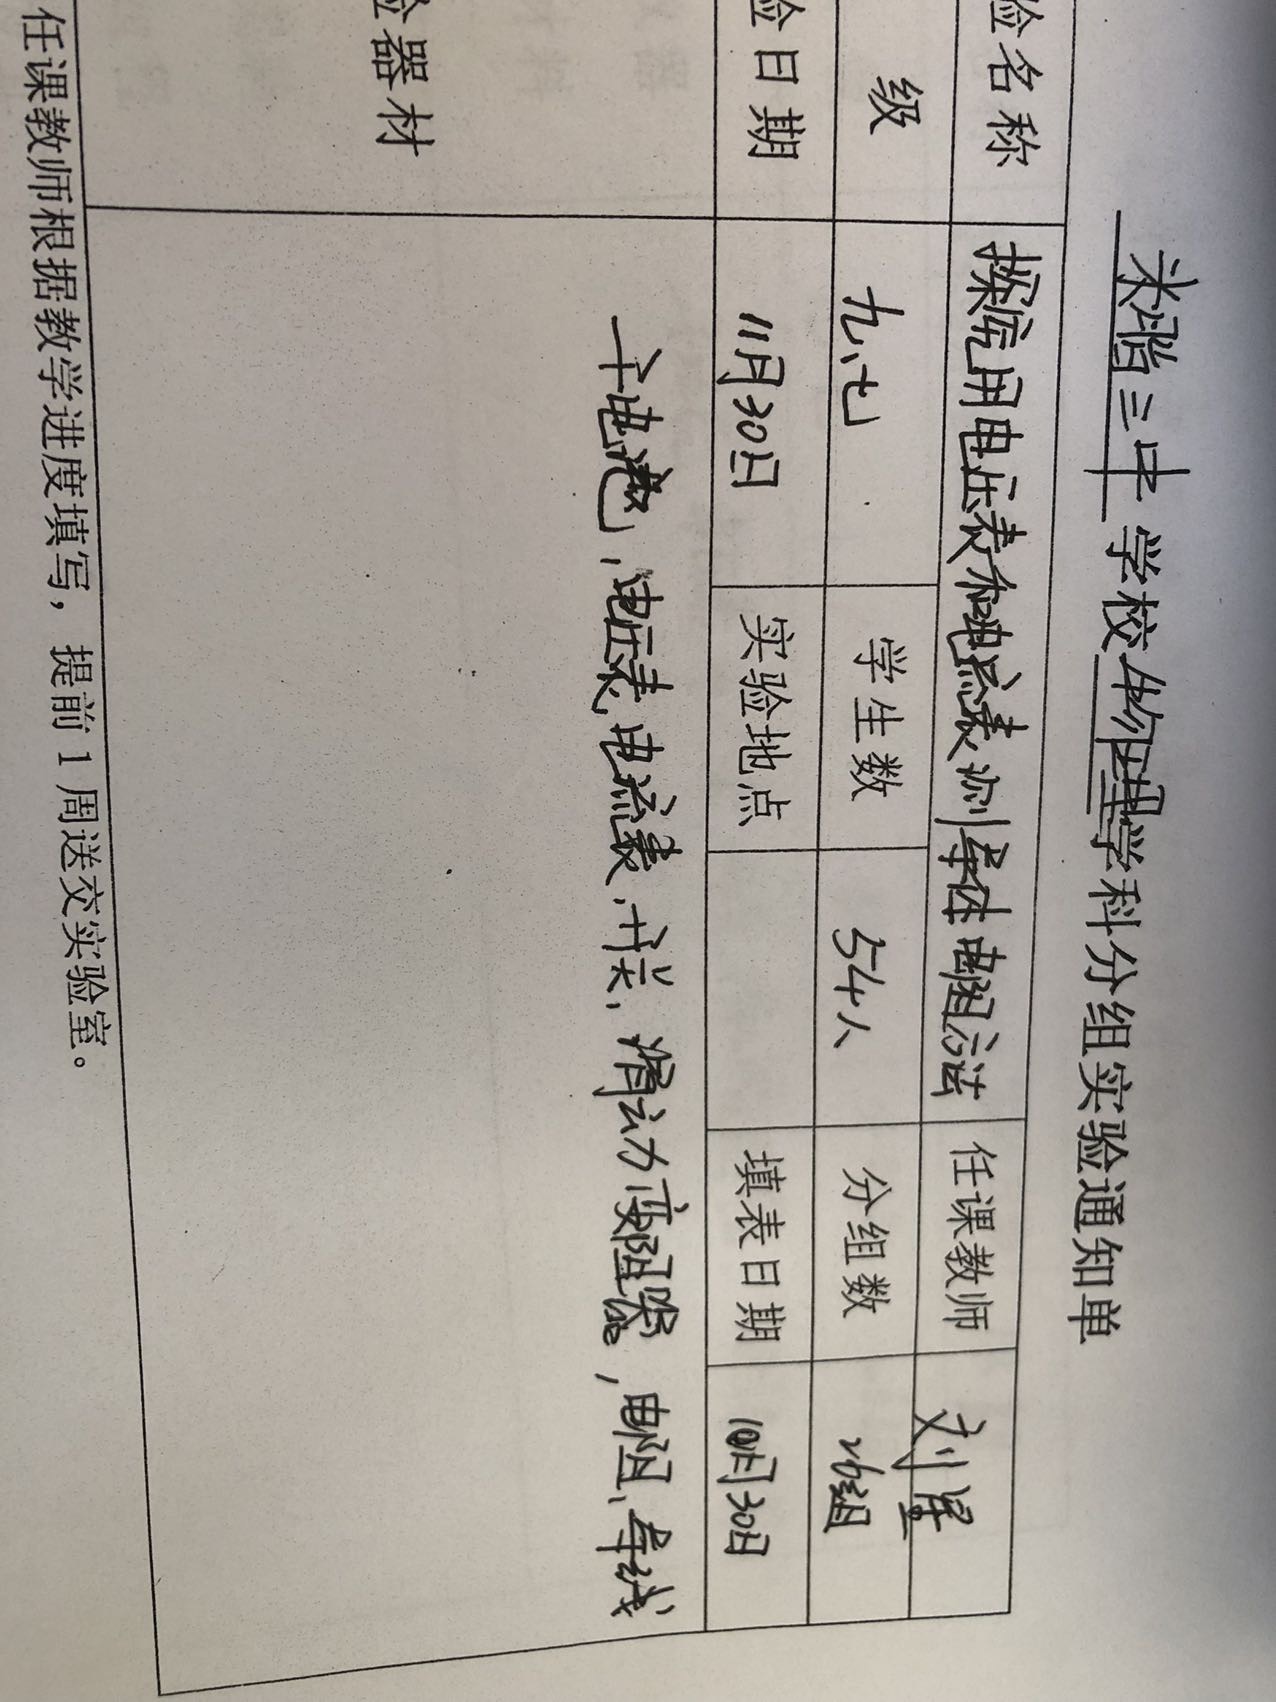 三中学校物理学科分组实验通知单
验名称 探究用电压表和电流表测导体电阻方法 任课教师 刘
级 九.七 学生数 54人 分组数 26组
验日期 11月30日 实验地点 填表日期 10月30日
验器材 干电池,电压表,电流表,开关,滑动变阻器,电阻,导线
任课教师根据教学进度填写,提前1周送交实验室。